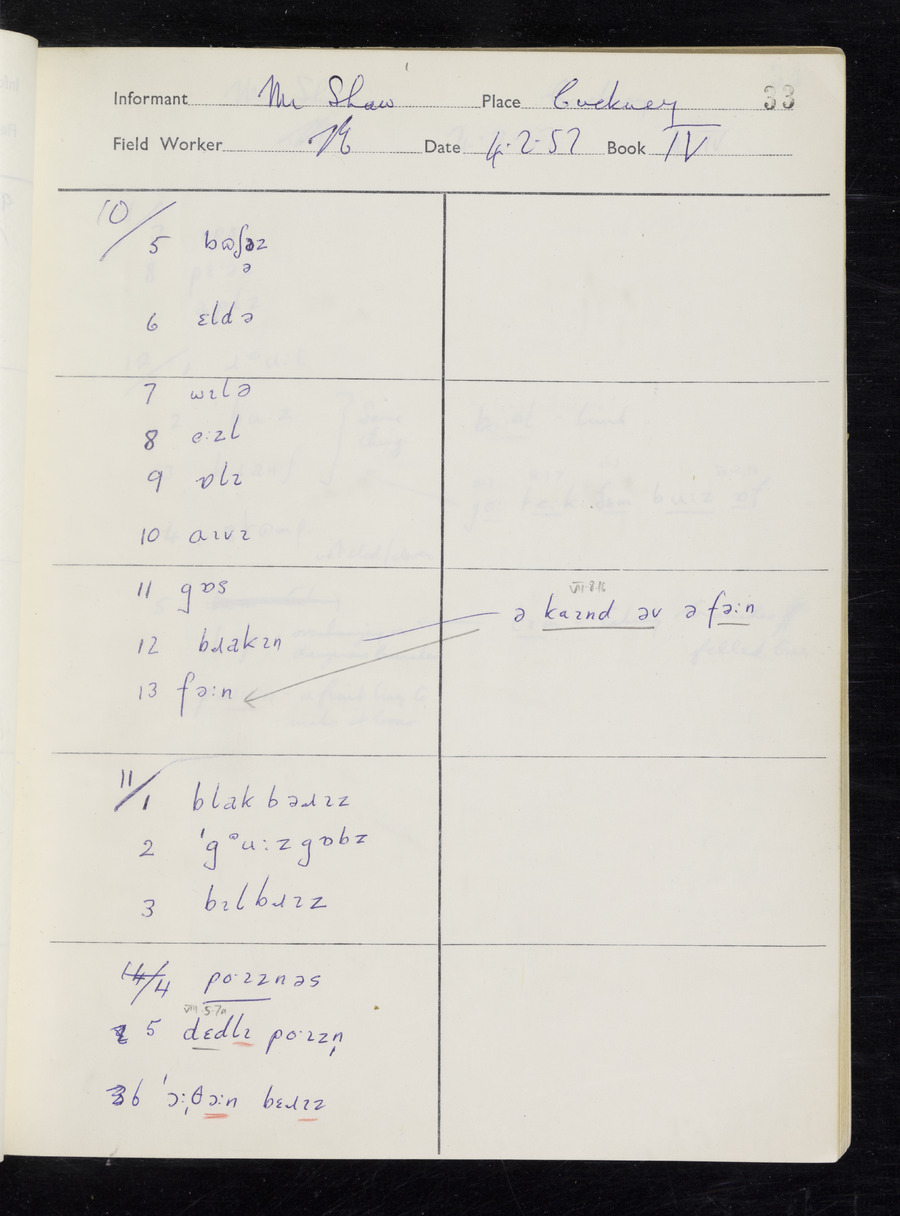 Informant Mr Shaw Place Cuckney 33
Field Worker Date 4.2.52 Book IV
10/
5
ə
6 ɛldə
7 wɪlə
8 e:zl
9 ɒlɪ
10 aɪvɪ
11 gɒs
VII.8.16
ə kaɪnd əv ə fəːn
12 bɹakɪn
13 fəːn
11/
1 blak bəɹɪz
2 'gᵊu:zgɒbz
3 bɪlbɹɪz
4 po·ɪznəs
VIII.5.7a
5 dɛdlɪ po·ɪzn̩
6 bɛɹɪz